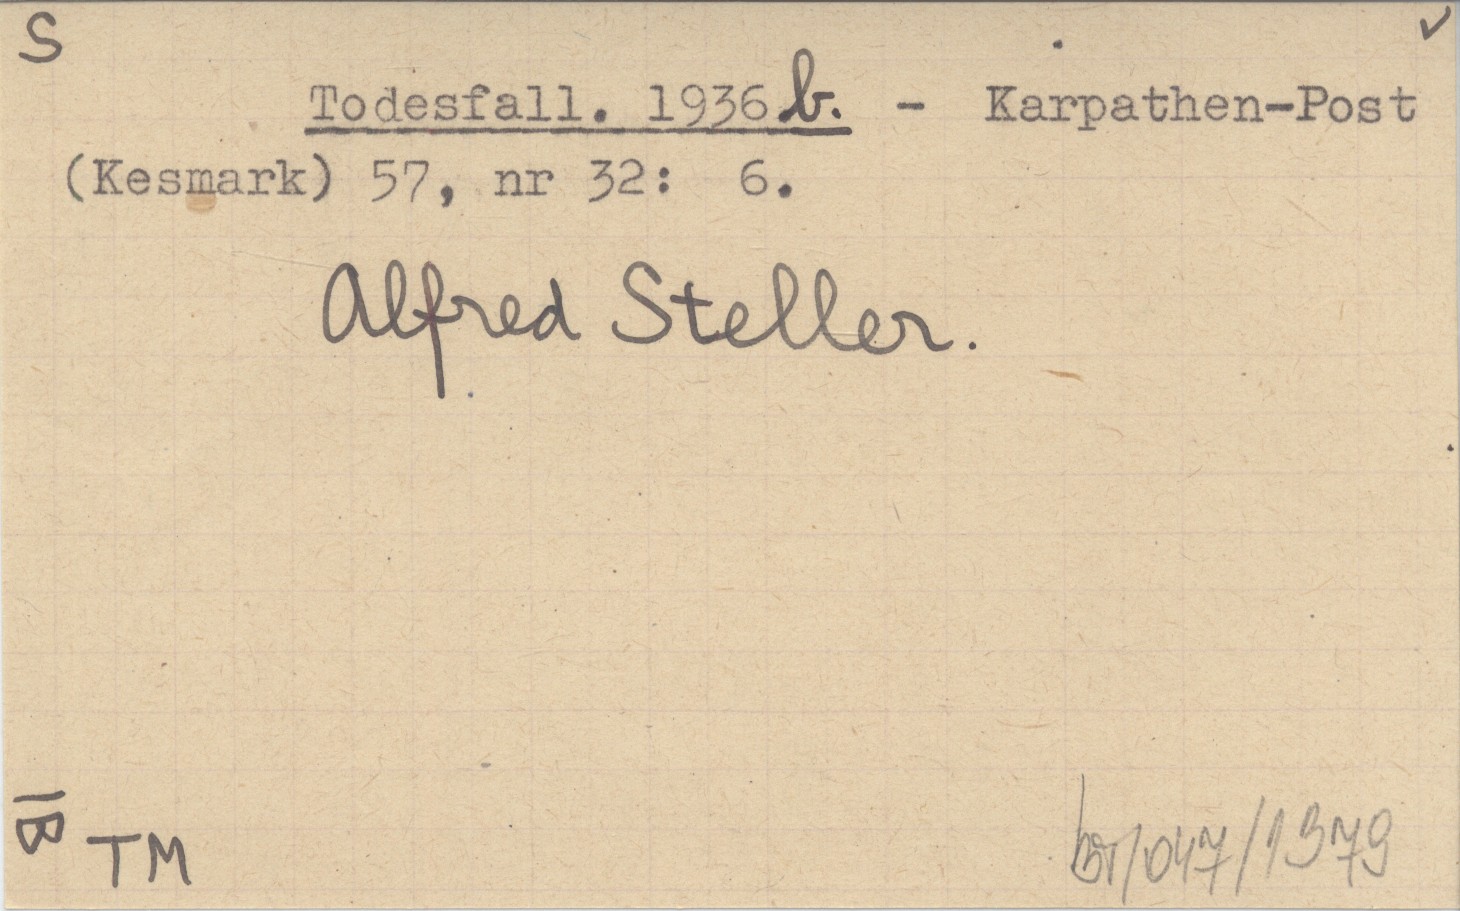 S ✓
Todesfall. 1936 b. - Karpathen-Post
(Kesmark) 57, nr 32: 6.
Alfred Steller.
IB
TM